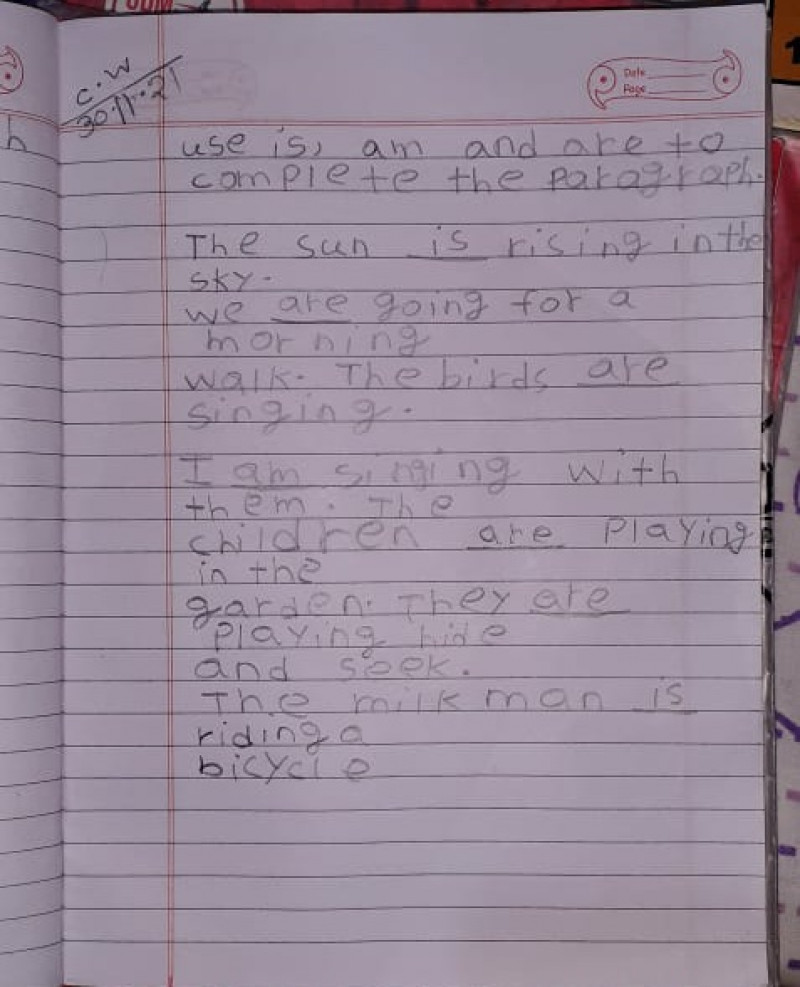 C.W
30.11.21
Date
Page
h
use is, am and are to
complete the paragraph.
The sun is rising in the
sky.
we are going for a
morning
walk. The birds are
singing.
I am singing with
them. The
children are playing
in the
garden. They are
playing hide
and seek.
The milk man is
riding a
bicycle